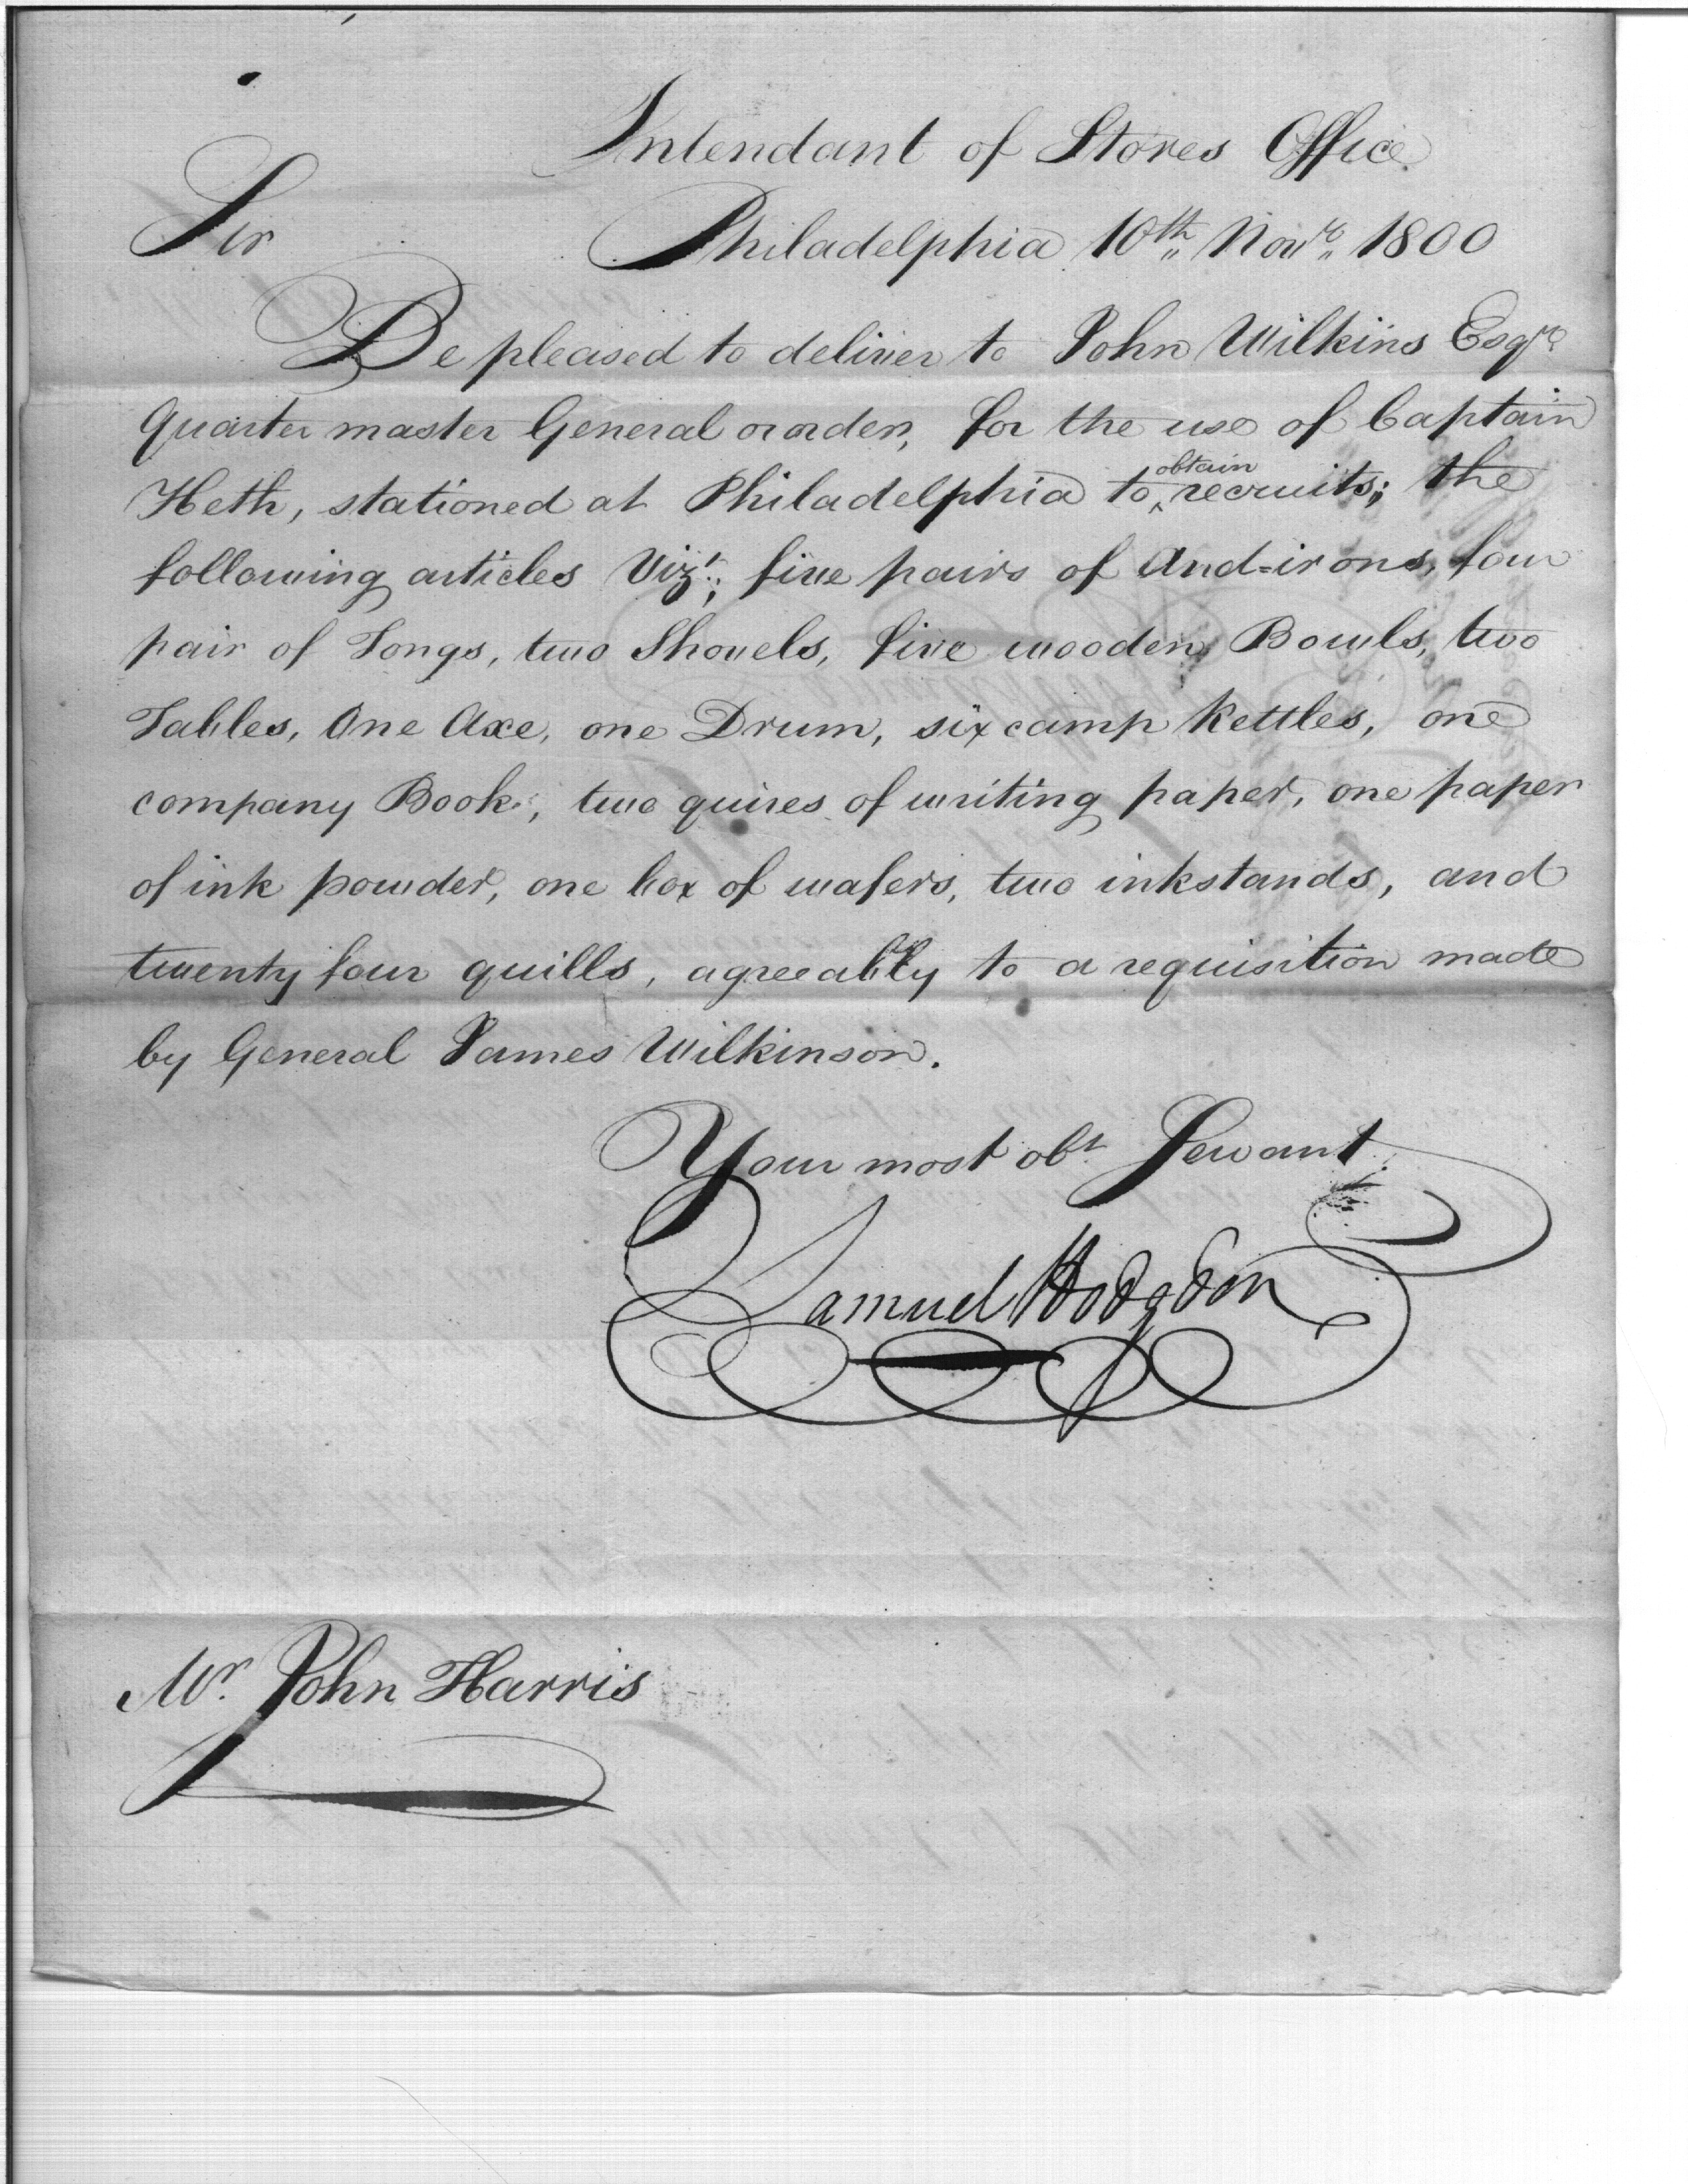 Intendant of Stores Office
Sir Philadelphia 10th Novr 1800
Be pleased to deliver to John Wilkins Esqre
Quarter master General or order, for the use of Captain
Heth, stationed at Philadelphia to obtain recruits; the
following articles Vizt; five pairs of And-irons, four
pair of Tongs, two Shovels, five wooden Bowls, two
Tables, One Axe, one Drum, six camp Kettles, one
company Book, two quires of writing paper, one paper
of ink powder, one box of wafers, two inkstands, and
twenty four quills, agreeably to a requisition made
by General James Wilkinson.
Your most obt Servant
Samuel Hodgdon
Mr. John Harris